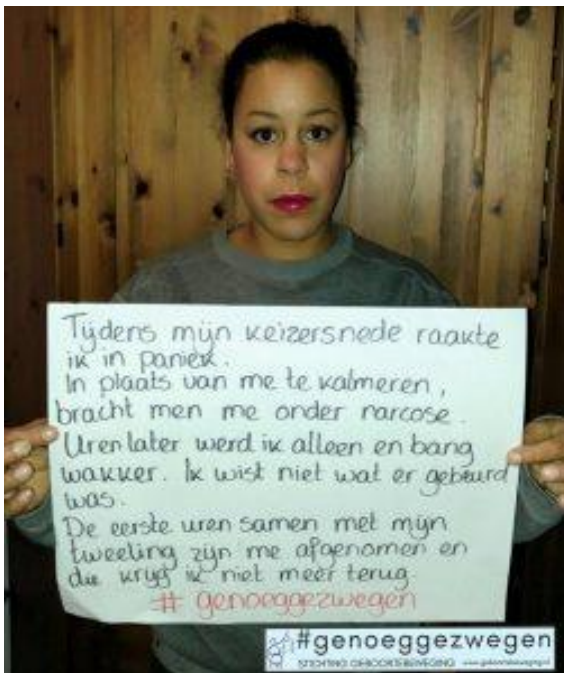 Tijdens mijn keizersnede raakte
ik in paniek.
In plaats van me te kalmeren,
bracht men me onder narcose.
Uren later werd ik alleen en bang
wakker. Ik wist niet wat er gebeurd
was.
De eerste uren samen met mijn
tweeling zijn me afgenomen en
die krijg ik niet meer terug
# genoeggezwegen
#genoeggezwegen
STICHTING GEBOORTEBEWEGING